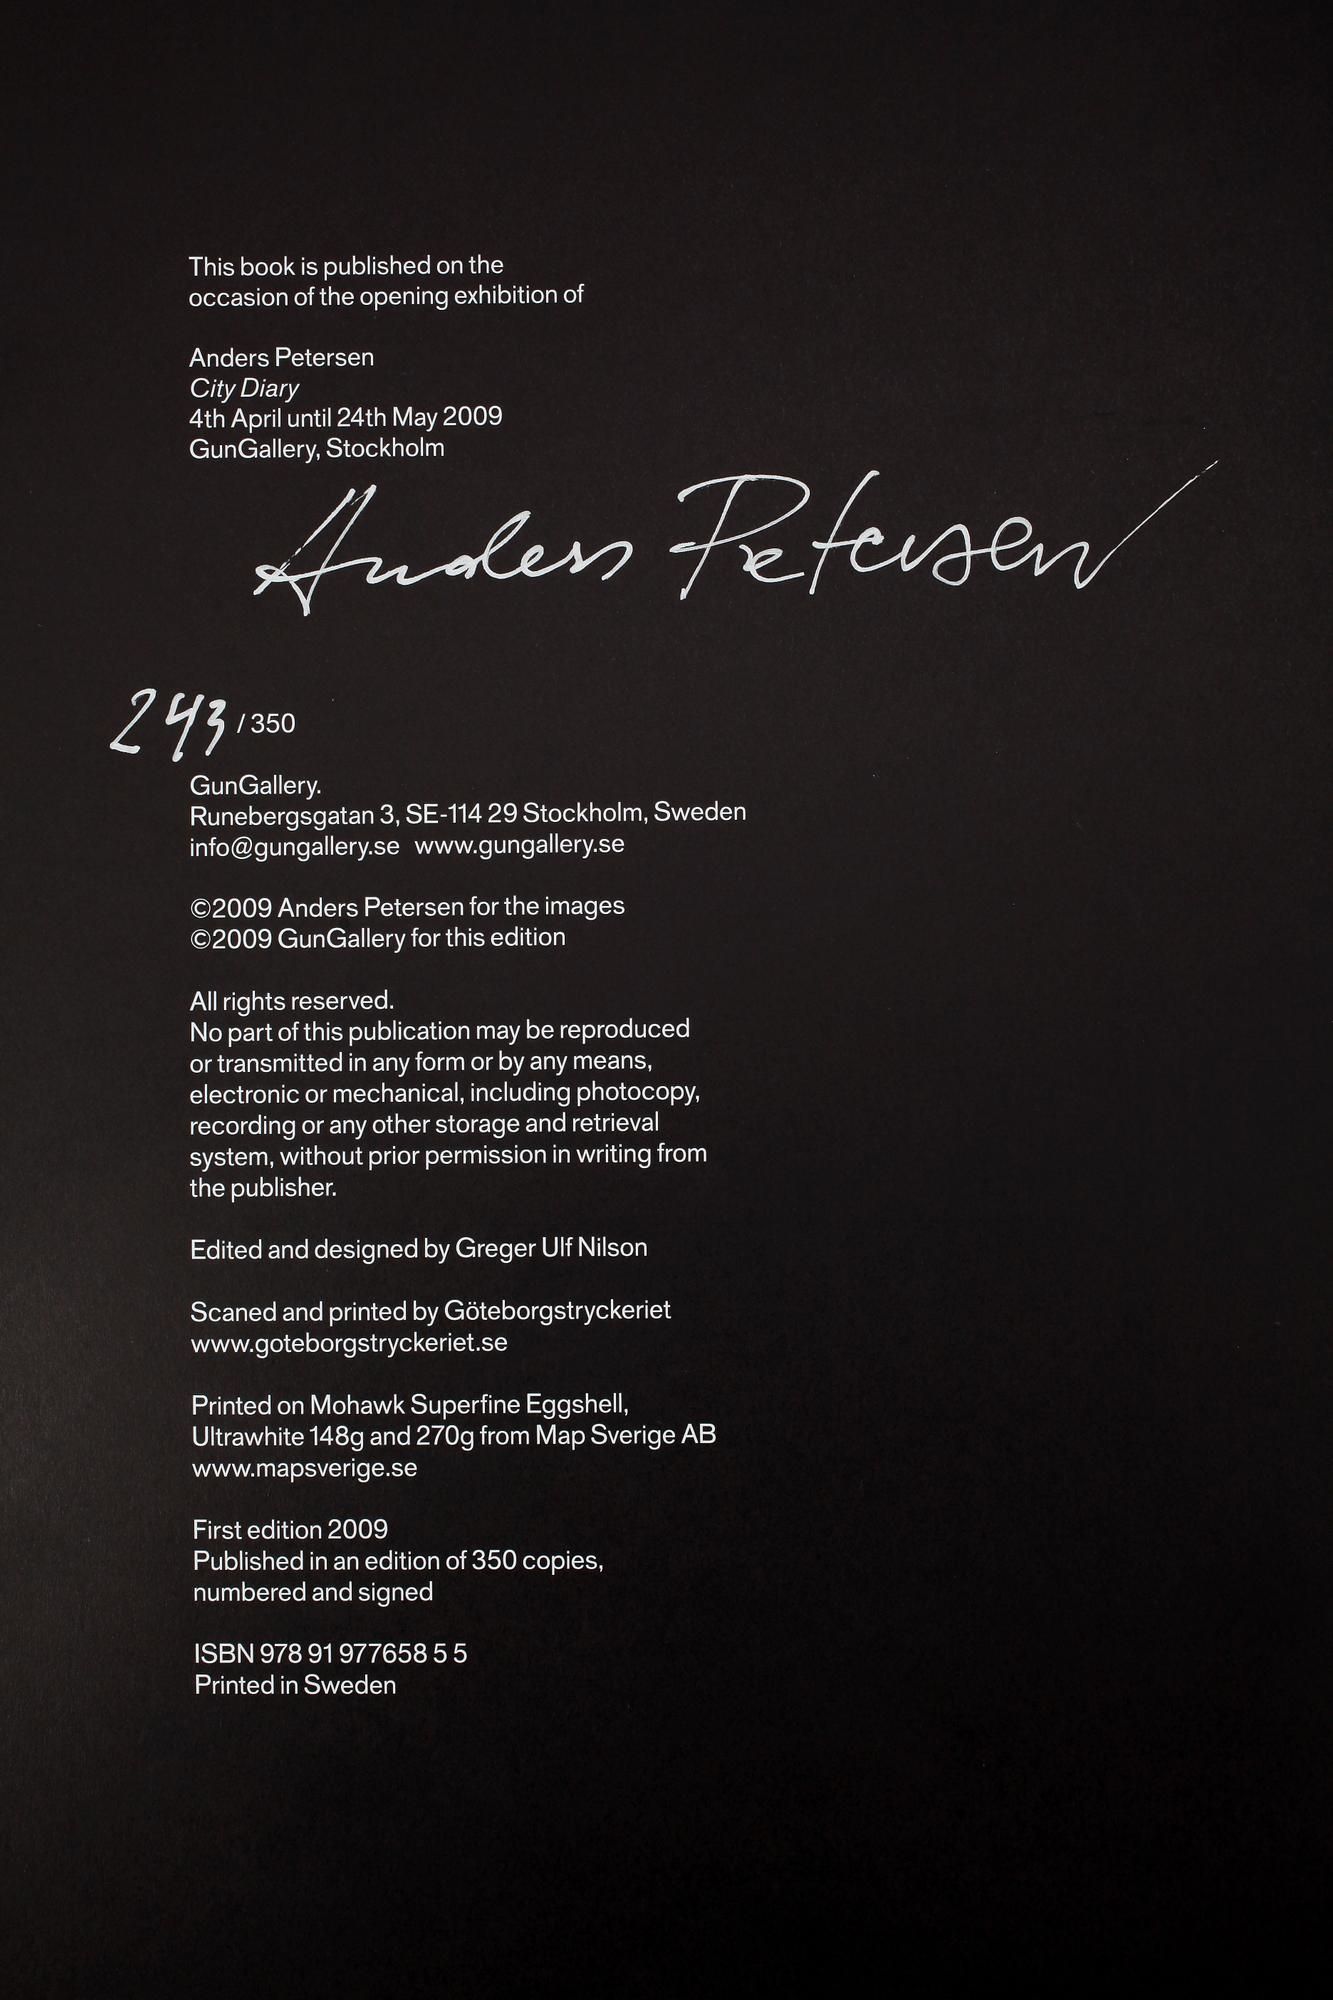 This book is published on the
occasion of the opening exhibition of
Anders Petersen
City Diary
4th April until 24th May 2009
GunGallery, Stockholm
Anders Petersen
243 / 350
GunGallery.
Runebergsgatan 3, SE-114 29 Stockholm, Sweden
info@gungallery.se www.gungallery.se
©2009 Anders Petersen for the images
©2009 GunGallery for this edition
All rights reserved.
No part of this publication may be reproduced
or transmitted in any form or by any means,
electronic or mechanical, including photocopy,
recording or any other storage and retrieval
system, without prior permission in writing from
the publisher.
Edited and designed by Greger Ulf Nilson
Scaned and printed by Göteborgstryckeriet
www.goteborgstryckeriet.se
Printed on Mohawk Superfine Eggshell,
Ultrawhite 148g and 270g from Map Sverige AB
www.mapsverige.se
First edition 2009
Published in an edition of 350 copies,
numbered and signed
ISBN 978 91 977658 5 5
Printed in Sweden